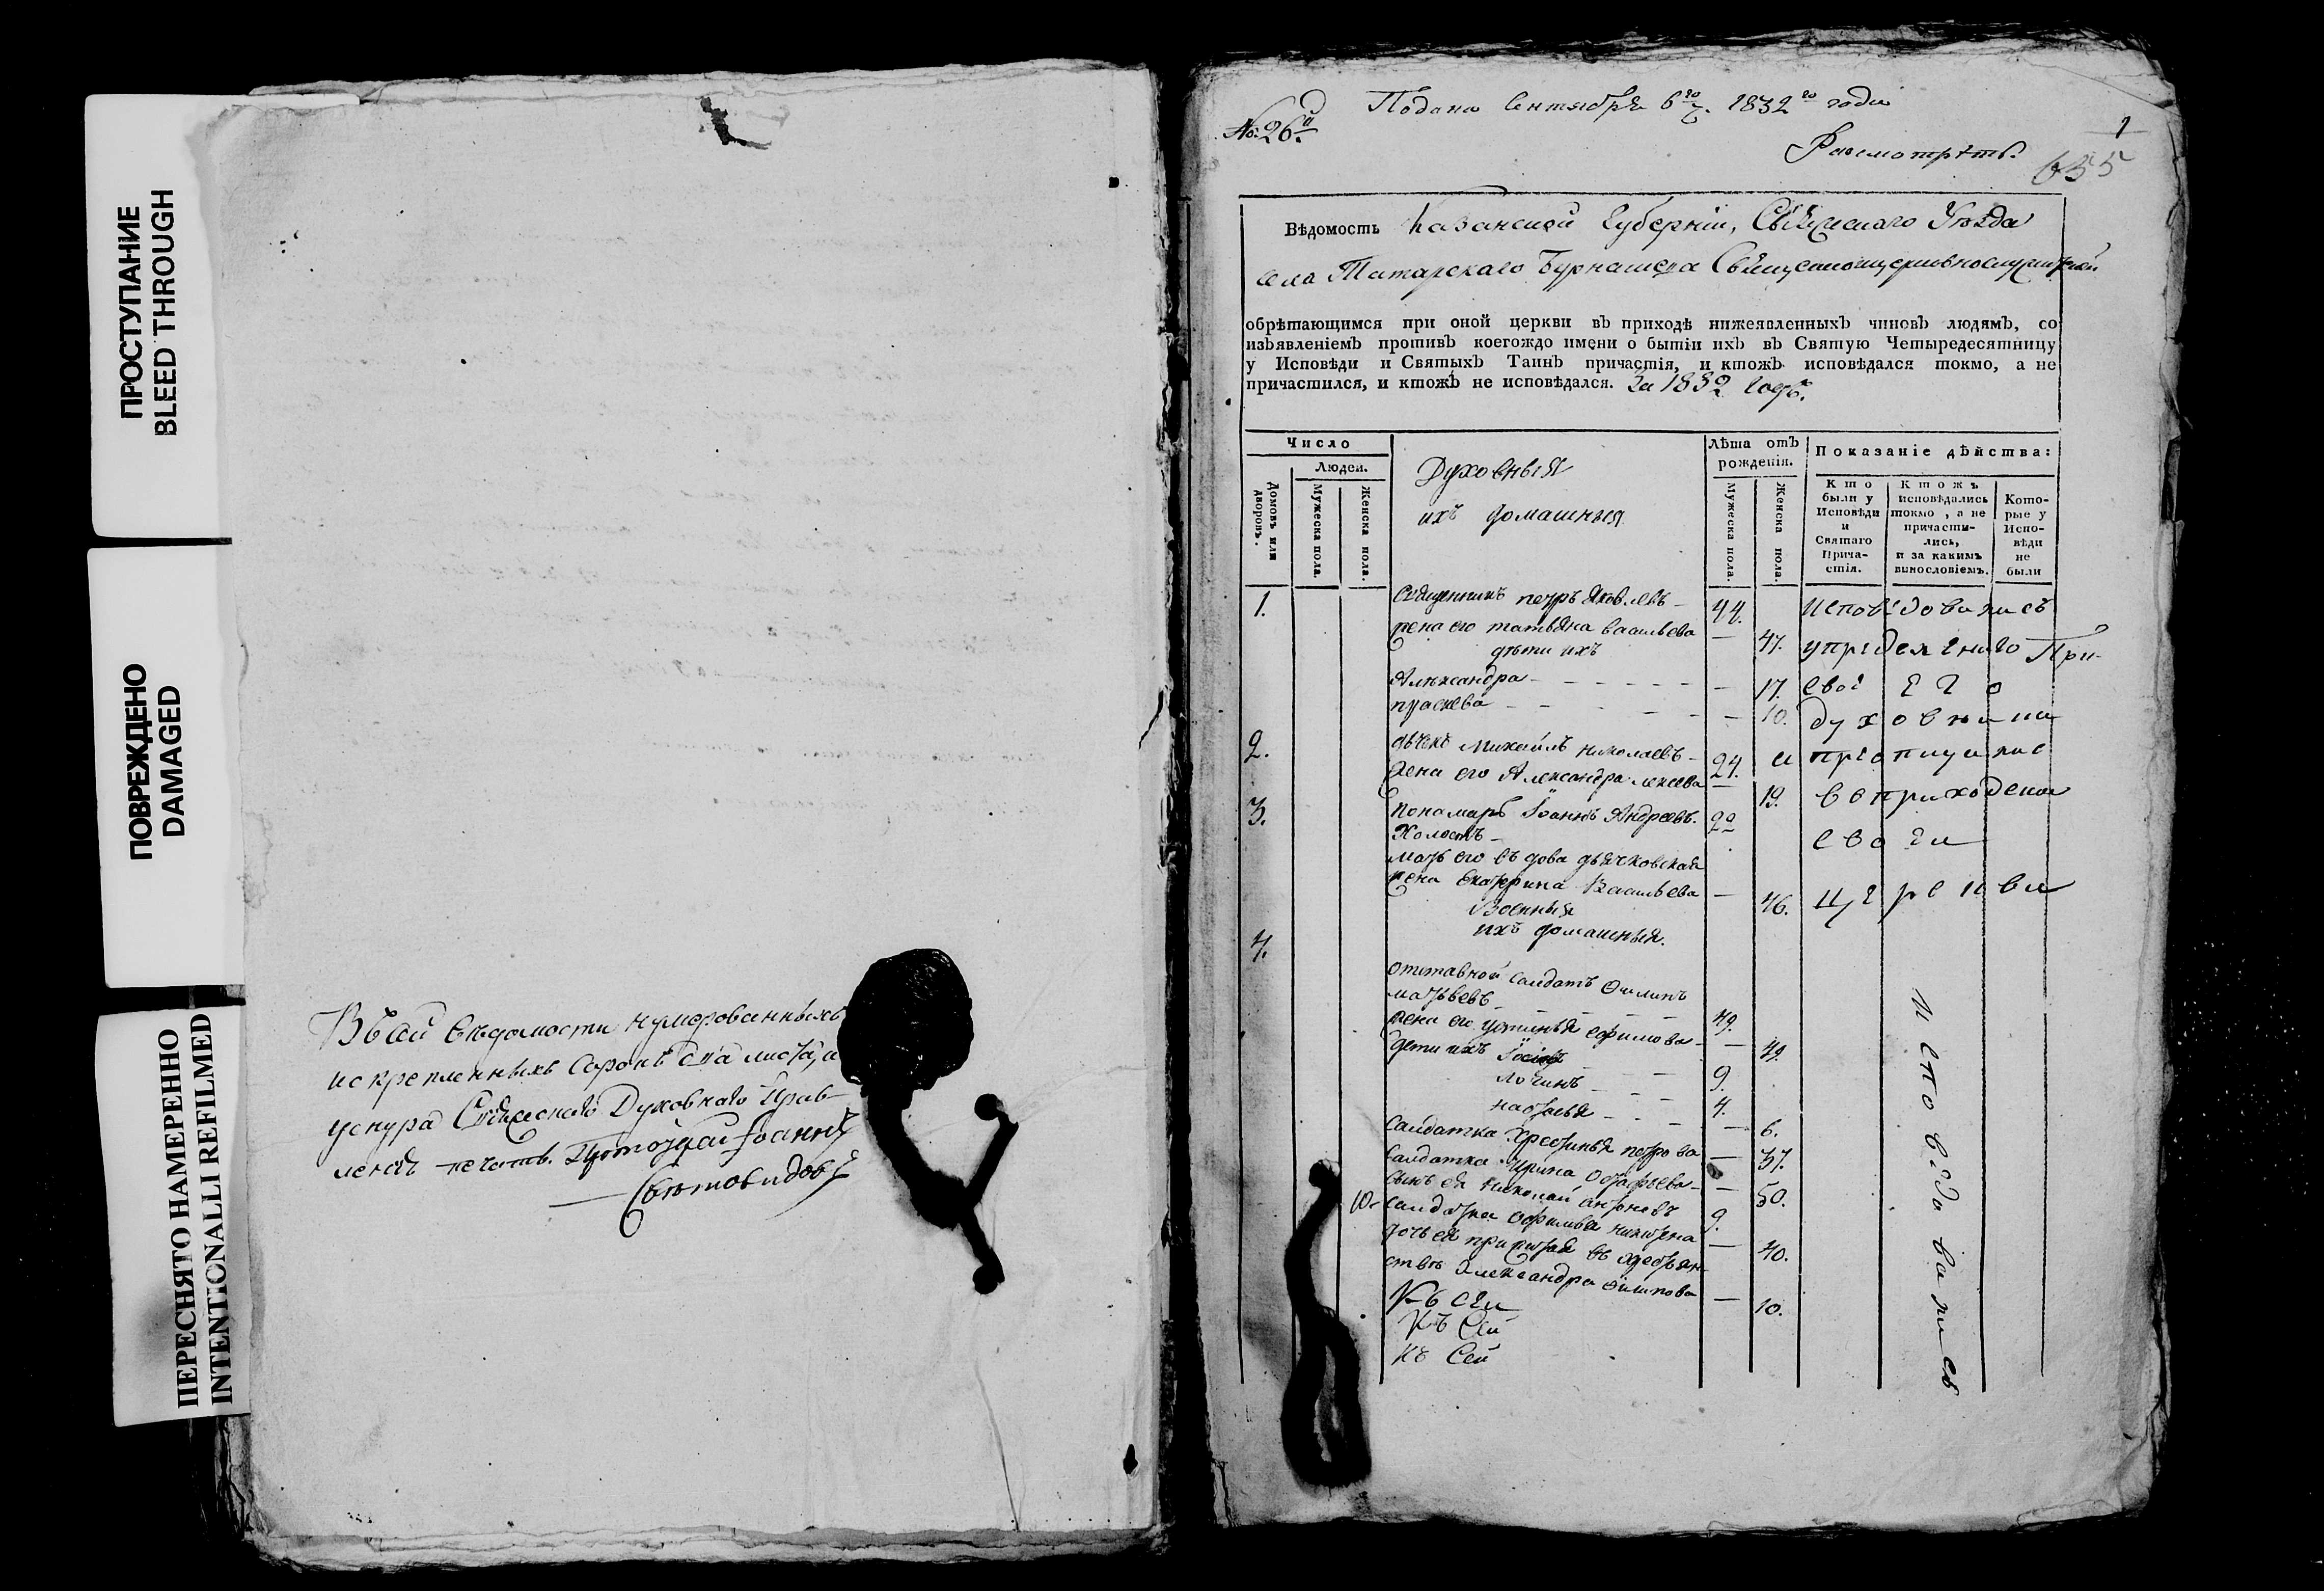 ПРОСТУПАНИЕ
BLEED THROUGH
ПОВРЕЖДЕНО
DAMAGED
ПЕРЕСНЯТО НАМЕРЕННО
INTENTIONALLI REFILMED
Въ сей вѣдомости нумерованныхъ
искрепленныхъ сорокъ два листа, а
Духовнаго Прав-
ленія печать. Іоаннъ
Свѣтовидовъ
Подана Сентября 6го ч. 1832го года
№ 26й
Разсмотрѣть.
1
655
Вѣдомость Казанской Губерніи, Свіяжскаго Уѣзда
села Татарскаго Бурнашева
обрѣтающимся при оной церкви въ приходѣ нижеявленныхъ чиновъ людямъ, со
изъявленіемъ противъ коегождо имени о бытіи ихъ въ Святую Четыредесятницу
у Исповѣди и Святыхъ Таинъ причастія, и ктожъ исповѣдался токмо, а не
причастился, и ктожъ не исповѣдался. За 1832 годъ.
Число
Людей.
Домовъ или дворовъ.
Мужеска пола.
Женска пола.
Духовныя
ихъ домашныя
Лѣта отъ рожденія.
Мужеска пола.
Женска пола.
Показаніе дѣйства:
Кто были у Исповѣди и Святаго Причастія.
Ктожъ исповѣдались токмо, а не причастились, и за какимъ винословіемъ.
Которые у Исповѣди не были
1. священникъ петръ Яковлевъ 44. исповѣдовались
жена его татьяна васильева — 47.
дѣти ихъ
Александра — 17. своего
праскева — 10. духовника
2. дьячекъ Михаилъ николаевъ 24. и
жена его Александра лексева — 19. въ приходской
3. пономарь Іоаннъ Андреевъ. 20
Холостъ своей
мать его вдова дьячковская
жена Екатерина Васильева — 46. церкви
Военныя
ихъ домашныя.
4.
отставной салдатъ Филипъ
матвевъ 49.
жена его устинья ефимова — 49.
дети ихъ 9.
логинъ 4.
настасья — 6.
салдатка Хрестинья петрова — 37.
салдатка Ирина — 50.
сынъ ея Николай антоновъ 9.
салдатка никитина — 40.
дочь ея
Александра филипова — 10.
исповѣдовались
Къ сей
Къ Сей
Къ Сей